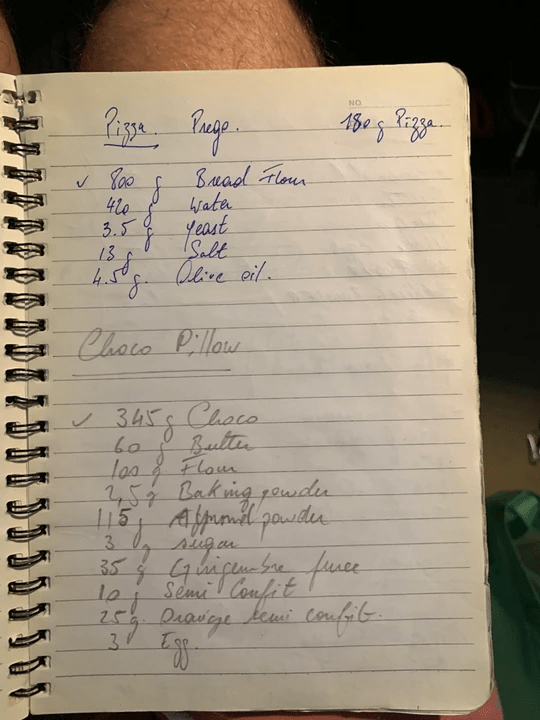 NO.
Pizza. Prego. 180 g Pizza.
✓ 800 g Bread Flour
420 g Water
3.5 g yeast
13 g Salt
4.5 g. Olive oil.
Choco Pillow
✓ 345 g Choco
60 g Butter
100 g Flour
2,5 g Baking powder
115 g powder
3 g sugar
35 g Gingembre
10 g Semi Confit
25 g. Orange semi confit.
3 Egg.